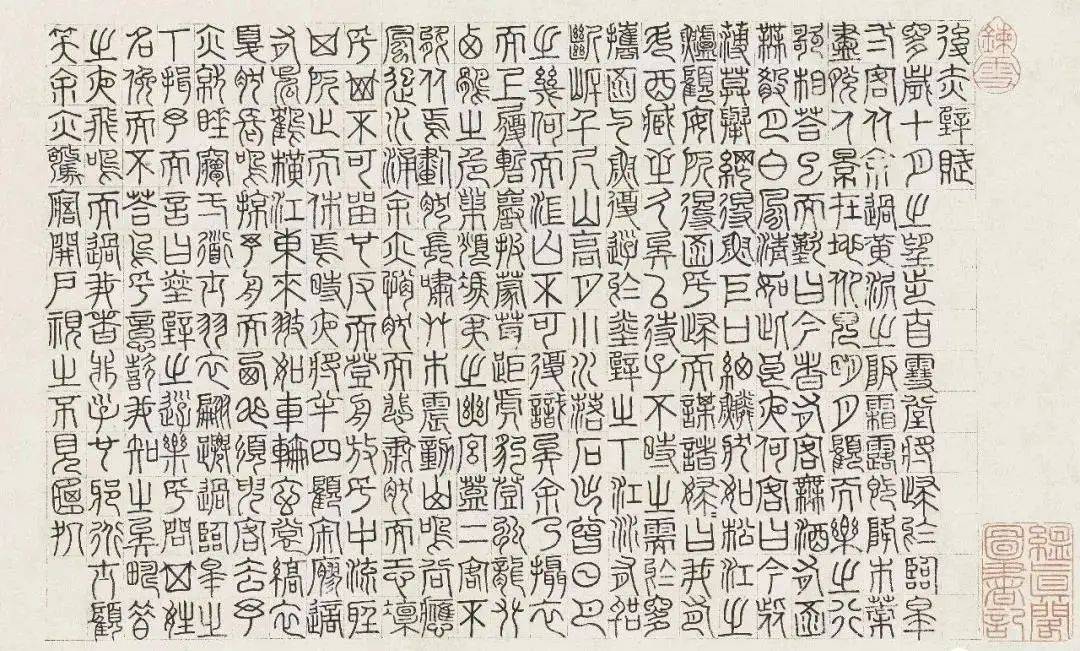 後赤壁賦
是歲十月之望步自雪堂將歸於臨皋
二客從余過黃泥之坂霜露既降木葉
盡脫人影在地仰見明月顧而樂之行
歌相答已而歎曰今者有客無酒有酒
無殽月白風清如此良夜何客曰今者
薄莫舉網得魚巨口細鱗狀如松江之
鱸顧安所得酒乎歸而謀諸婦曰我有
斗酒藏之久矣以待子不時之需於是
攜酒與魚復遊於赤壁之下江流有聲
斷岸千尺山高月小水落石出曾日月
之幾何而江山不可復識矣余乃攝衣
而上履巉巖披蒙茸踞虎豹登虯龍攀
栖鶻之危巢俯馮夷之幽宮蓋二客不
能從焉劃然長嘯草木震動山鳴谷應
風起水涌余亦悄然而悲肅然而恐凜
乎其不可留也反而登舟放乎中流聽
其所止而休焉時夜將半四顧寂寥適
有孤鶴橫江東來翅如車輪玄裳縞衣
戛然長鳴掠予舟而西也須臾客去予
亦就睡夢一道士羽衣翩躚過臨皋之
下揖予而言曰赤壁之遊樂乎問其姓
名俛而不答嗚呼噫嘻我知之矣疇昔
之夜飛鳴而過我者非子也耶道士顧
笑余亦驚寤開戶視之不見其處